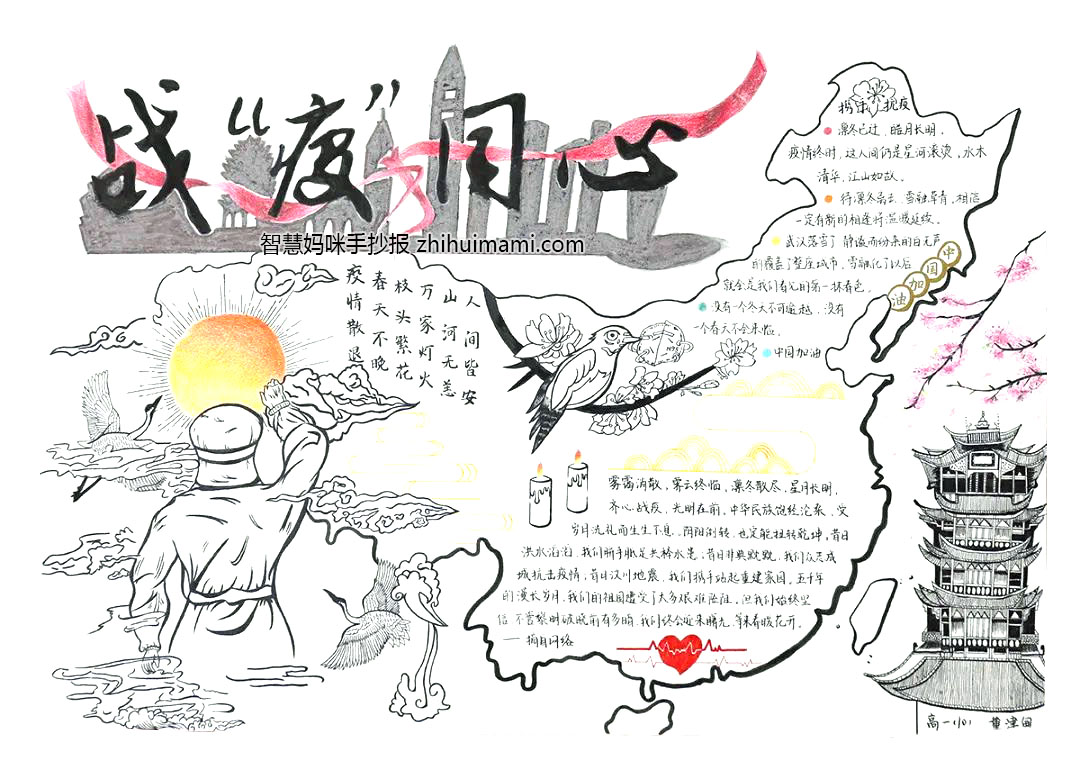 战“疫”同心
智慧妈咪手抄报 zhihuimami.com
人间皆安
山河无恙
万家灯火
枝头繁花
春天不晚
疫情散退
携手抗疫
凛冬已过，皓月长明，
疫情终时，这人间仍是星河滚烫，水木
清华，江山如故。
待凛冬离去，雪融草青，相信
一定有新的相逢将温暖延续。
武汉落雪了 静谧而纷来的白无声
的覆盖了整座城市，雪融化了以后
就会是我们看见的第一抹春色。
没有一个冬天不可逾越，没有
一个春天不会来临。
中国加油
中国加油
雾霭消散，雾云终临，凛冬散尽，星月长明，
齐心战疫，光明在前。中华民族饱经沧桑，受
岁月洗礼而生生不息。阴阳倒转，也定能扭转乾坤，昔日
洪水滔滔，我们新手眦足共榆水患；昔日非典
城抗击疫情，昔日汶川地震，我们携手站起重建家园。五千年
的漫长岁月，我们的祖国遭受了太多艰难险阻，但我们始终坚
信 不管黎明破晓前有多暗，我们终会迎来曙光，等来春暖花开。
——摘自网络
高一1101 黄津田